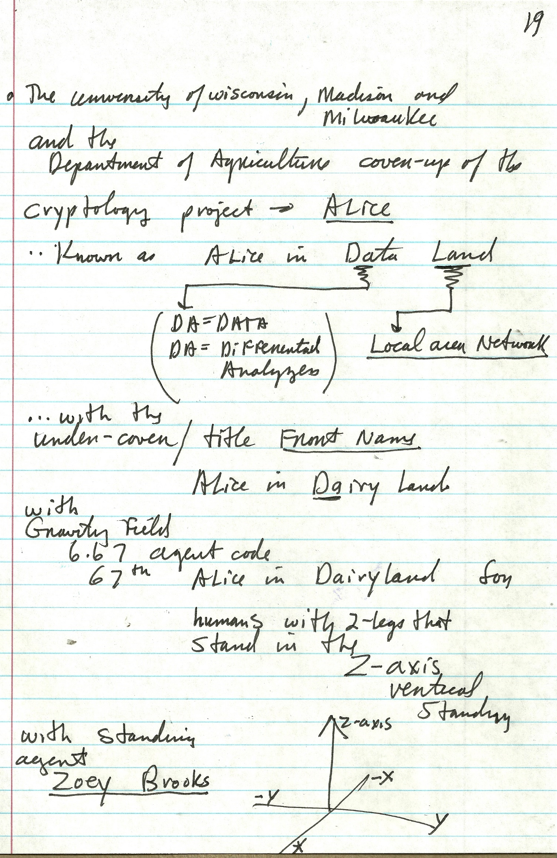 19
The university of wisconsin, Madison and
Milwaukee
and the
Department of Agriculture cover-up of the
cryptology project → Alice
.. Known as Alice in Data Land
DA = DATA
DA = Differential
Analyzer
Local area Network
... with the
under-cover / title Front Name
Alice in Dairy Land
with
Gravity Field
6.67 agent code
67th Alice in Dairyland for
humans with 2-legs that
stand in the
Z-axis
vertical
standing
with standing
agent
Zoey Brooks
Z-axis
-X
-Y
Y
X